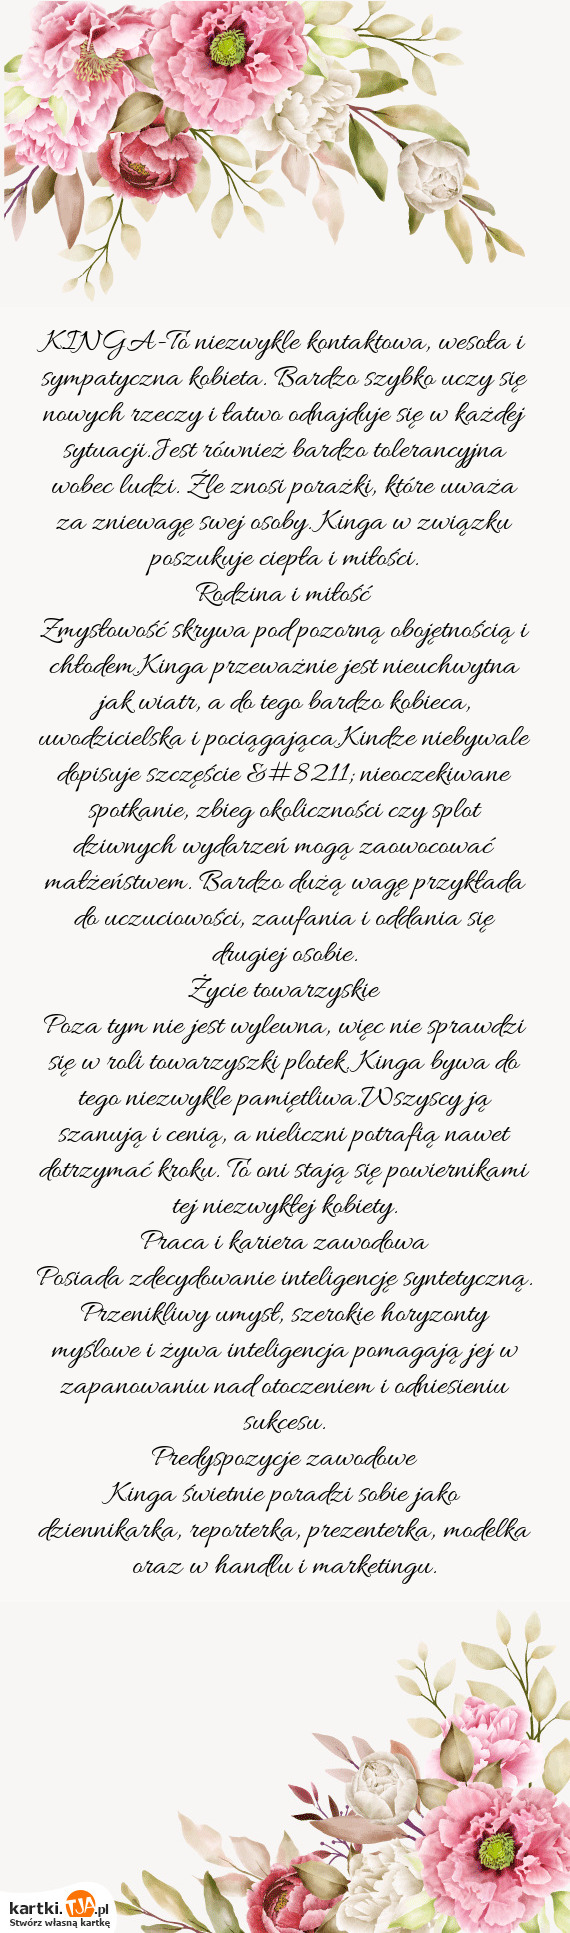 KINGA-To niezwykle kontaktowa, wesoła i
sympatyczna kobieta. Bardzo szybko uczy się
nowych rzeczy i łatwo odnajduje się w każdej
sytuacji.Jest również bardzo tolerancyjna
wobec ludzi. Źle znosi porażki, które uważa
za zniewagę swej osoby.Kinga w związku
poszukuje ciepła i miłości.
Rodzina i miłość
Zmysłowość skrywa pod pozorną obojętnością i
chłodem.Kinga przeważnie jest nieuchwytna
jak wiatr, a do tego bardzo kobieca,
uwodzicielska i pociągająca.Kindze niebywale
dopisuje szczęście &#8211; nieoczekiwane
spotkanie, zbieg okoliczności czy splot
dziwnych wydarzeń mogą zaowocować
małżeństwem. Bardzo dużą wagę przykłada
do uczuciowości, zaufania i oddania się
drugiej osobie.
Życie towarzyskie
Poza tym nie jest wylewna, więc nie sprawdzi
się w roli towarzyszki plotek.Kinga bywa do
tego niezwykle pamiętliwa.Wszyscy ją
szanują i cenią, a nieliczni potrafią nawet
dotrzymać kroku. To oni stają się powiernikami
tej niezwykłej kobiety.
Praca i kariera zawodowa
Posiada zdecydowanie inteligencję syntetyczną.
Przenikliwy umysł, szerokie horyzonty
myślowe i żywa inteligencja pomagają jej w
zapanowaniu nad otoczeniem i odniesieniu
sukcesu.
Predyspozycje zawodowe
Kinga świetnie poradzi sobie jako
dziennikarka, reporterka, prezenterka, modelka
oraz w handlu i marketingu.
kartki.TJA.pl
Stwórz własną kartkę